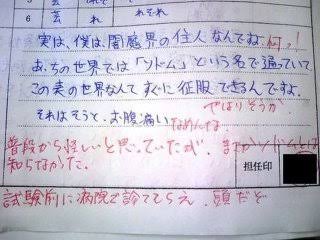 5 芸
6 芸 れ それぞれ
実は、僕は、闇魔界の住人なんですね 何っ!
あっちの世界では「ソドム」という名で通っていて
この表の世界なんてすぐに征服できるんですよ。
やはりそうか
それはそうと、お腹痛い なめんな
普段から怪しいと思っていたが、まさかソドムとは
知らなかった。
担任印
試験前に病院で診てもらえ。頭だぞ